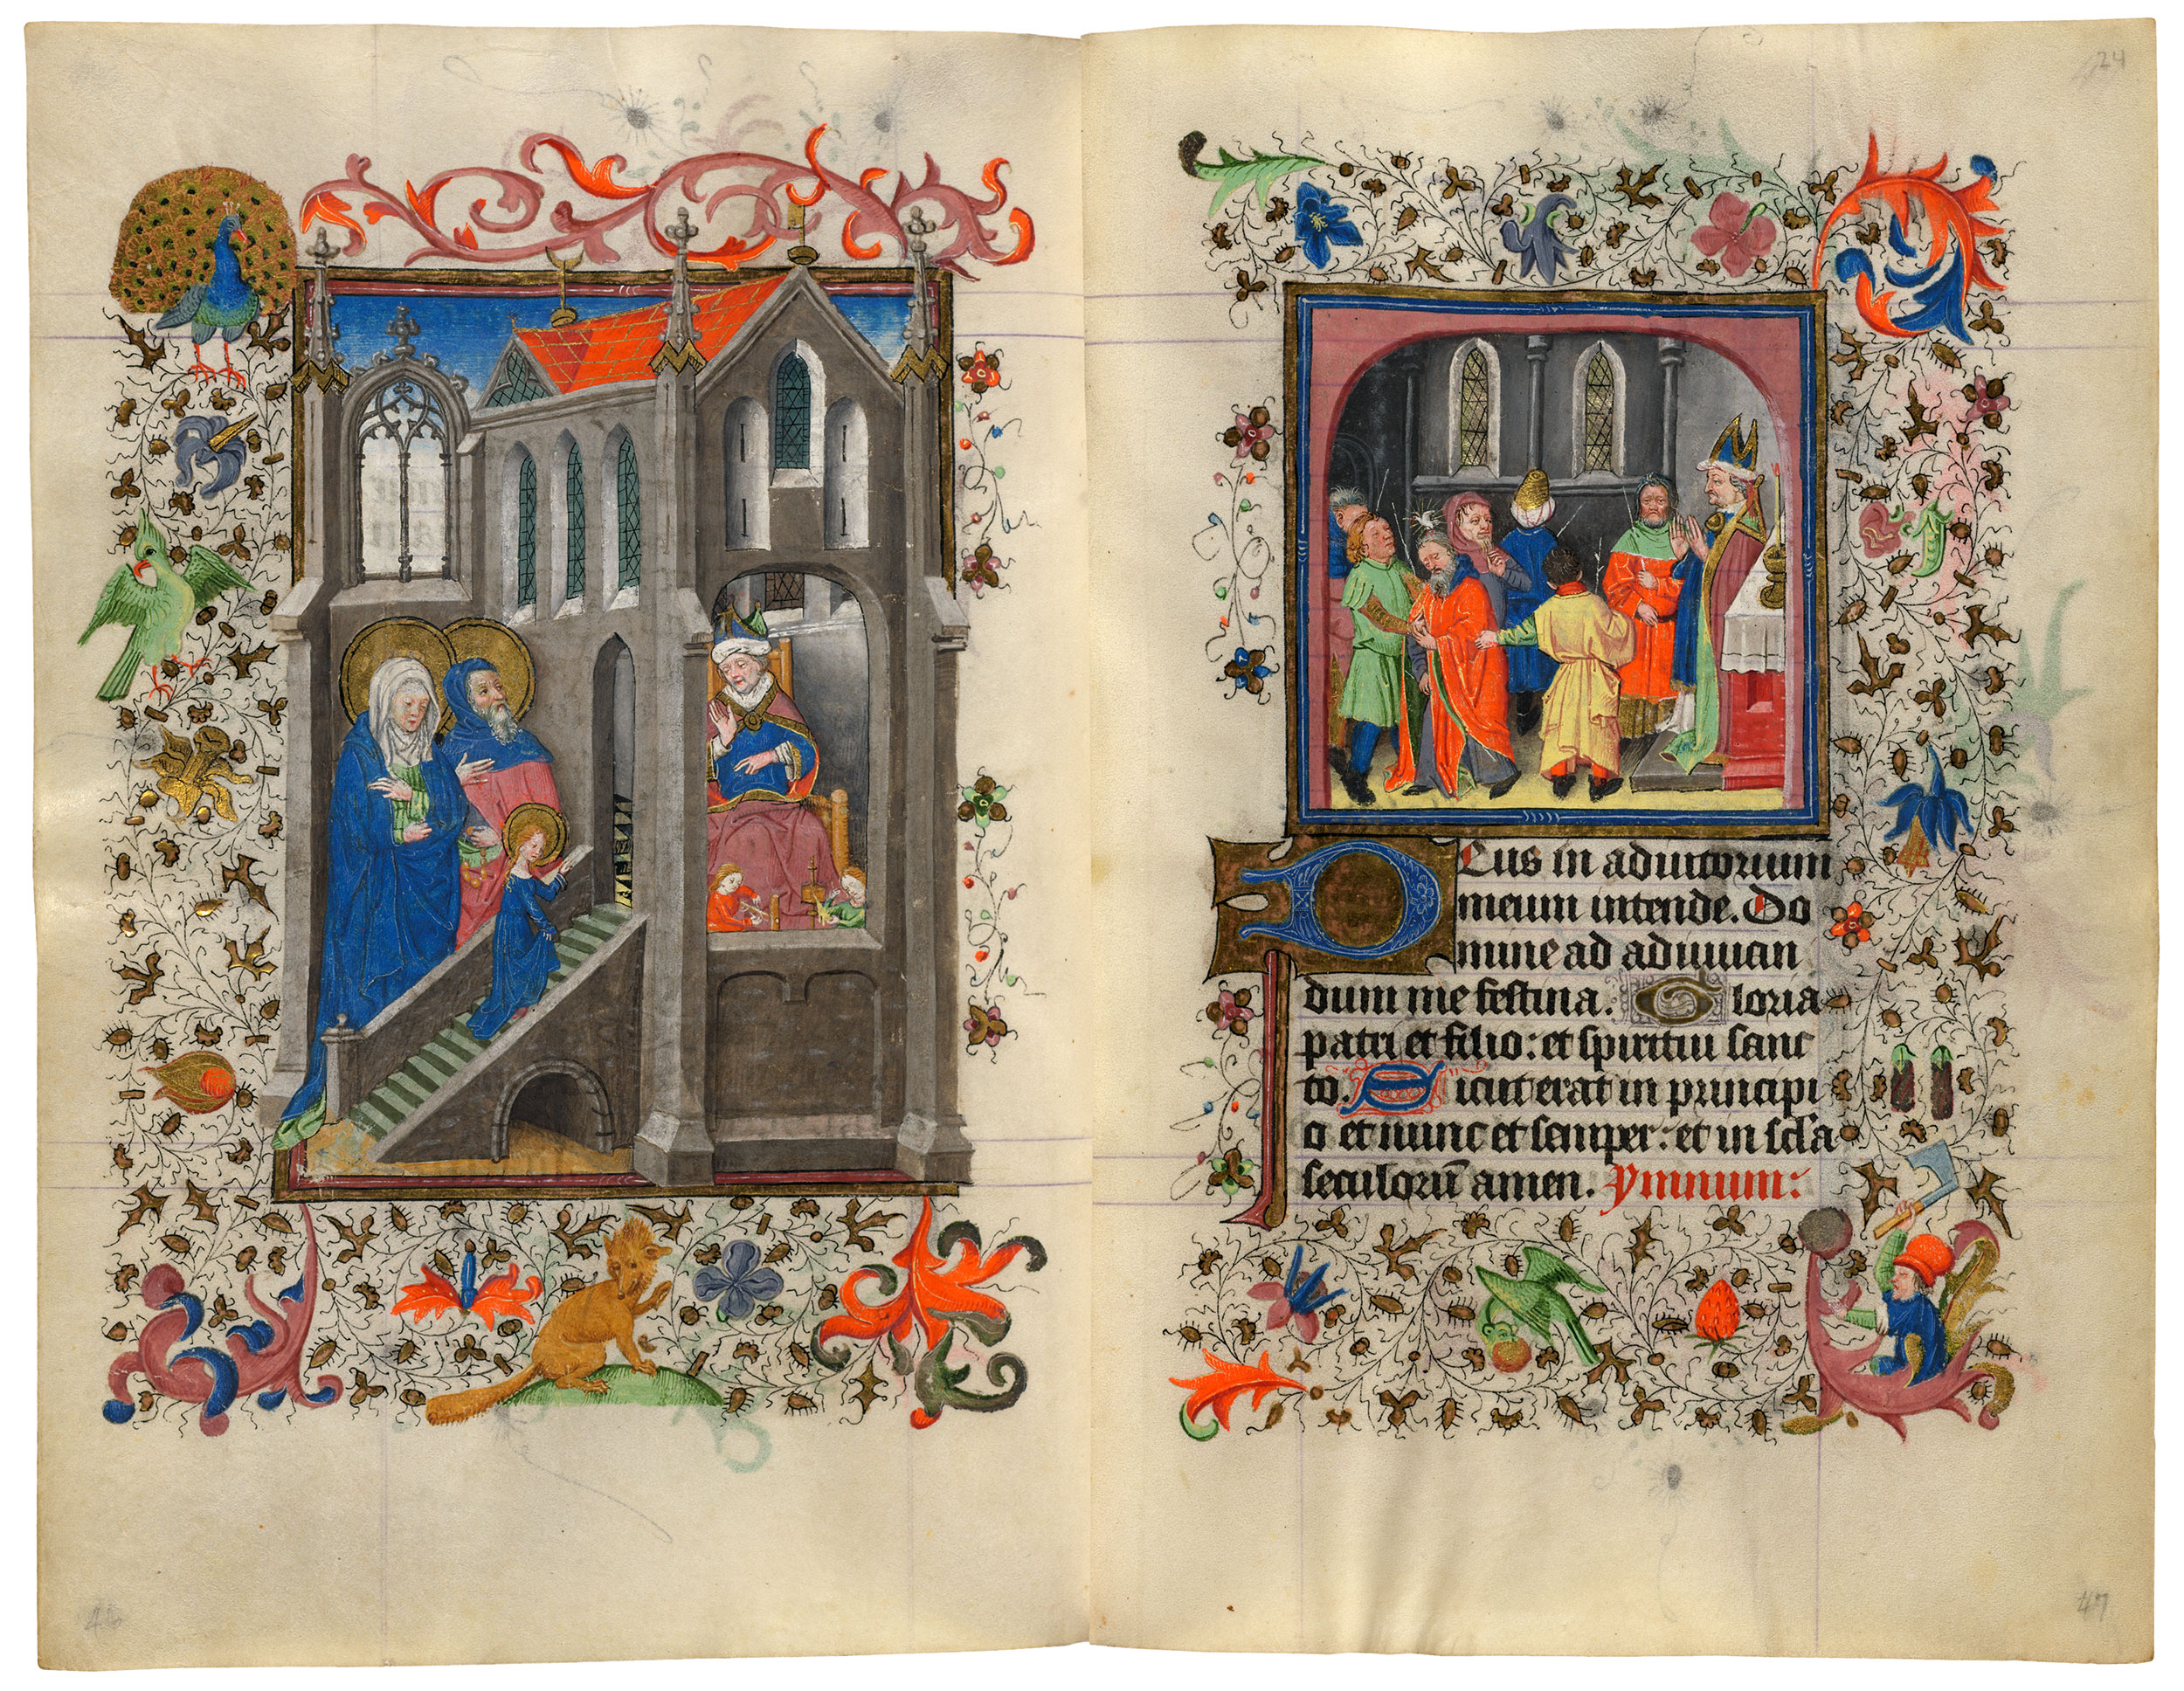 24
Deus in adiutorium
meum intende. Do
mine ad adiuuan
dum me festina. Gloria
patri et filio: et spiritui sanc
to. Sicut erat in principi
o et nunc et semper: et in scl'a
seculorū amen. ymnum:
46
47